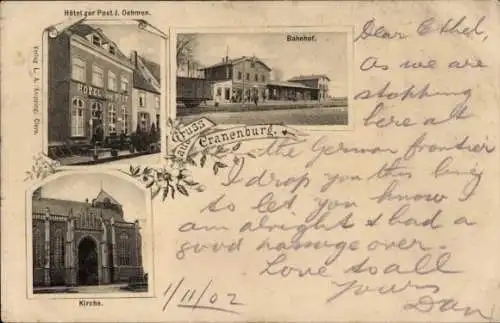 Hôtel zur Post J. Oehmen.
HOTEL
Bahnhof.
Gruss
aus
Cranenburg.
Kirche.
Dear Ethel,
As we are
stopping
here alt
the German frontier
I drop you this line
to let you know I
am alright & had a
good passage over.
Love to all
Yours
Dan
1/11/02